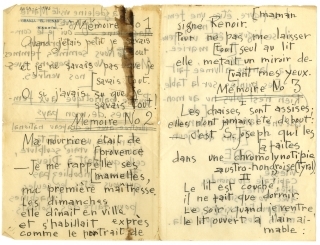 Mémoire No 1
Quand j'étais petit
et je ne savais pas que je
[savais tout.
O si j'avais su que je
[savais tout
Mémoire No 2
Ma nourrice était de
[provence
Je me rappelle ses
[mamelles,
ma première maîtresse
Les dimanches
elle dînait en ville
et s'habillait exprès
comme le portrait de
[maman
signé Renoir.
Pour ne pas me laisser
[tout seul au lit
elle mettait un miroir de-
[vant mes yeux.
Mémoire No 3
I
Les chaises sont assises;
elles n'ont jamais été debout:
c'est Joseph qui les
[a faites
dans une chromolynotipie
austro-hondroise (tyrol)
II
Le lit est couché,
il ne fait que dormir.
Le soir, quand je rentre
le lit ouvert
l'ai mai-
mable: